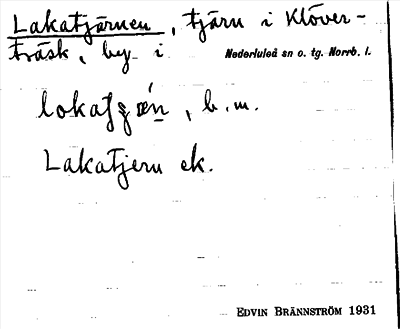 Lakatjärnen, tjärn i Klöver-
träsk, by i Nederluleå sn o. tg. Norrb. l.
b. m.
Lakatjern ek.
EDVIN BRÄNNSTRÖM 1931